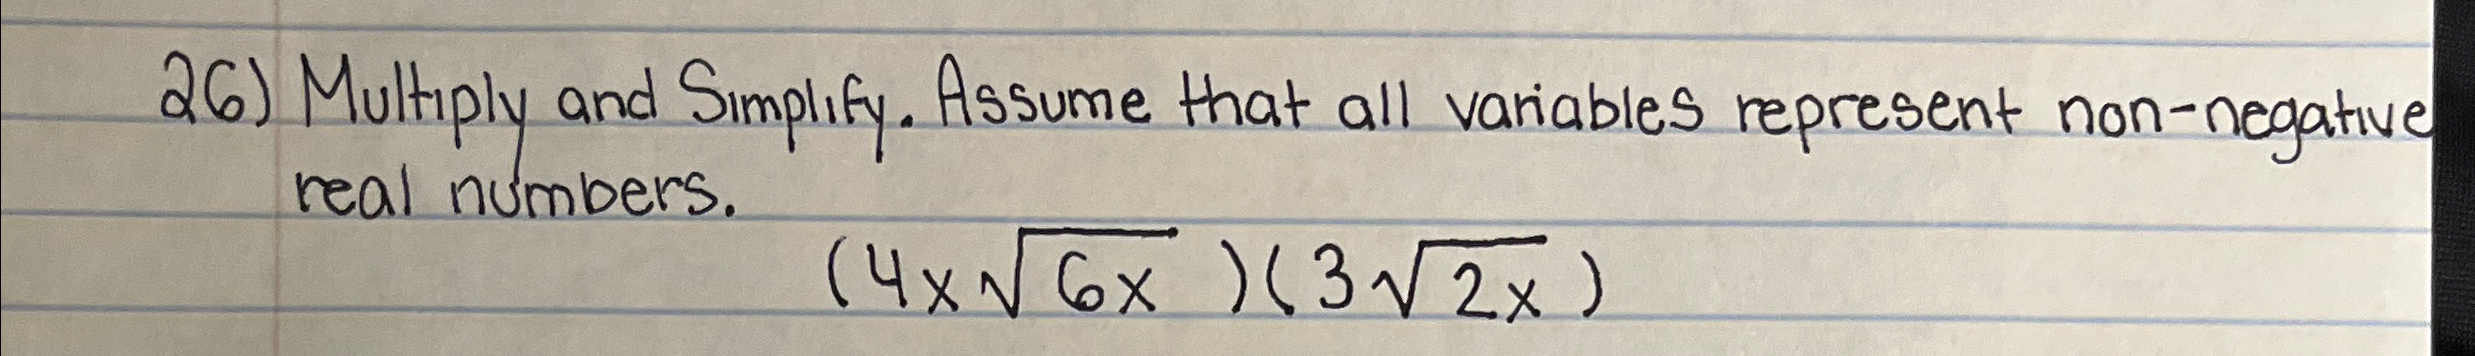 26) Multiply and Simplify. Assume that all variables represent non-negative
real numbers.
(4x√6x )(3√2x)